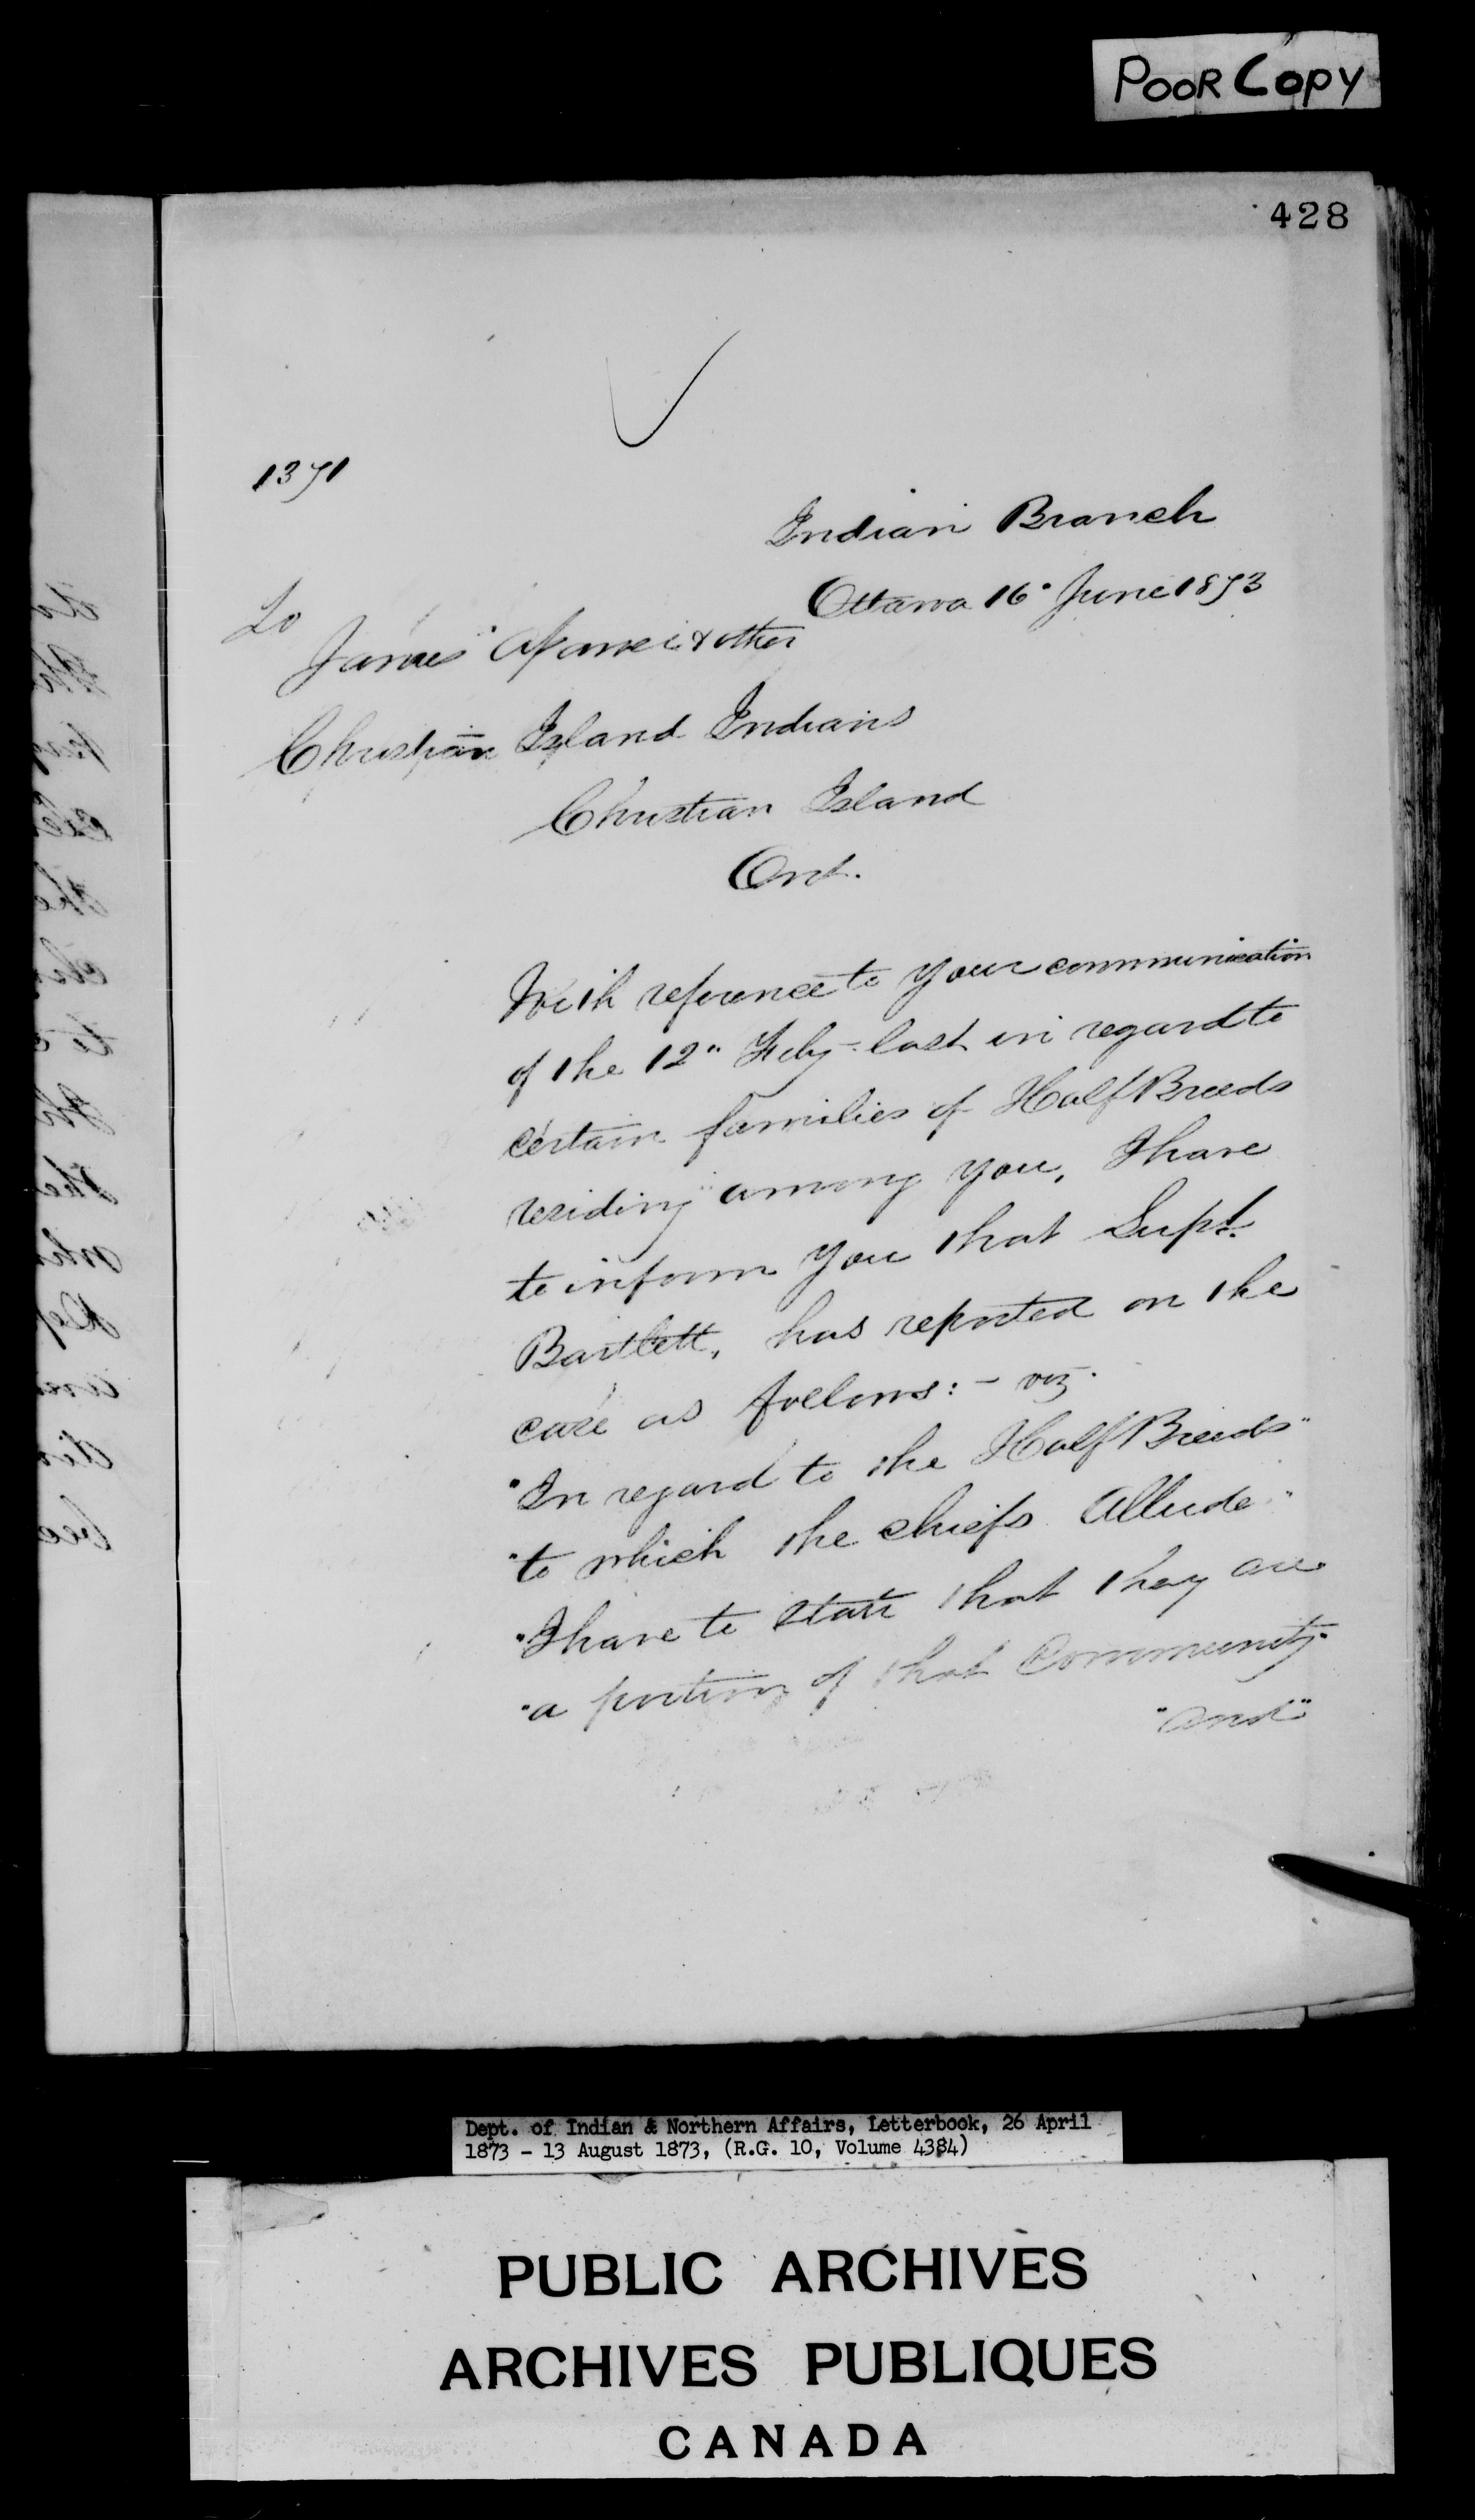 POOR COPY
428
1371
Indian Branch
Ottawa 16" June 1873
To
James & other
Christian Island Indians
Christian Island
Ont.
With reference to your communication
of the 12" Feby. last in regard to
certain families of Half Breeds
residing among you, I have
to inform you that Supt.
Bartlett, has reported on the
case as follows: - viz.
"In regard to the Half Breeds"
"to which the chiefs allude"
"I have to state that they are
"a portion of that Community"
"and"
Dept. of Indian & Northern Affairs, Letterbook, 26 April
1873 - 13 August 1873, (R.G. 10, Volume 4384)
PUBLIC ARCHIVES
ARCHIVES PUBLIQUES
CANADA